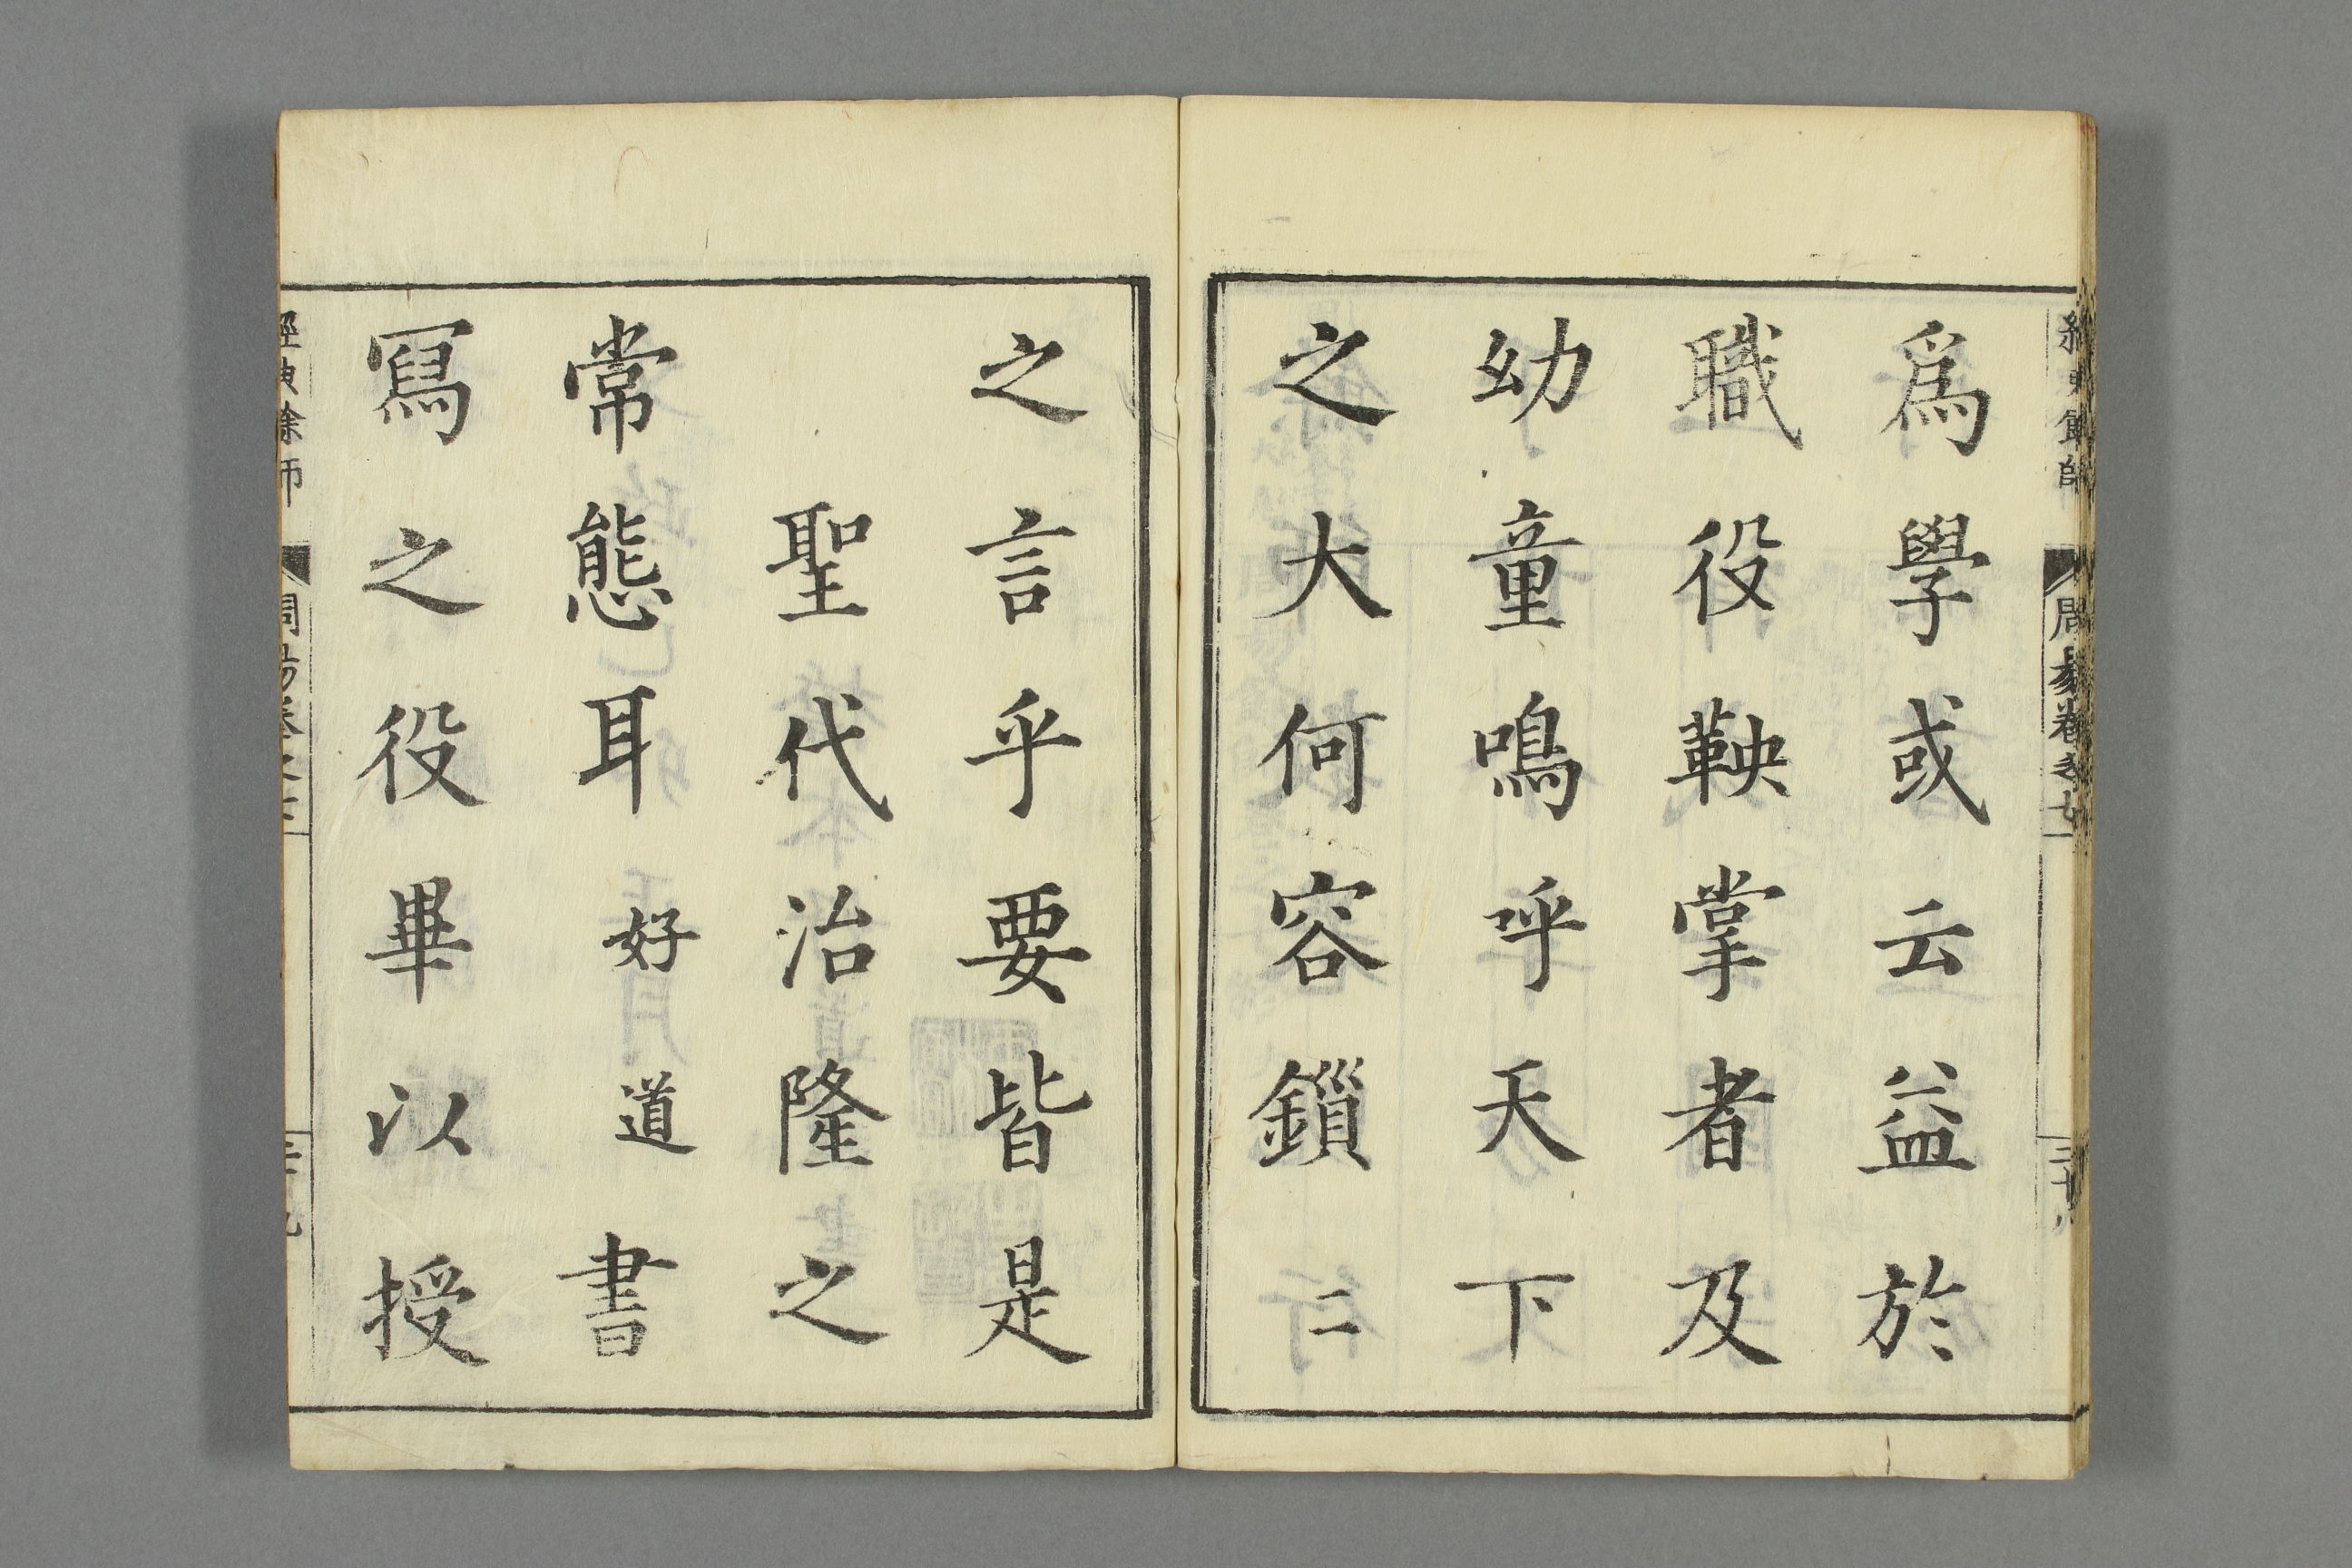 爲學或云益於
職役鞅掌者及
幼童鳴呼天下
之大何容鎻二
之言乎要皆是
聖代治隆之
常態耳好道書
冩之役畢以授
經典餘師
周易卷之七
三十八
經典餘師
周易卷之七
三十九